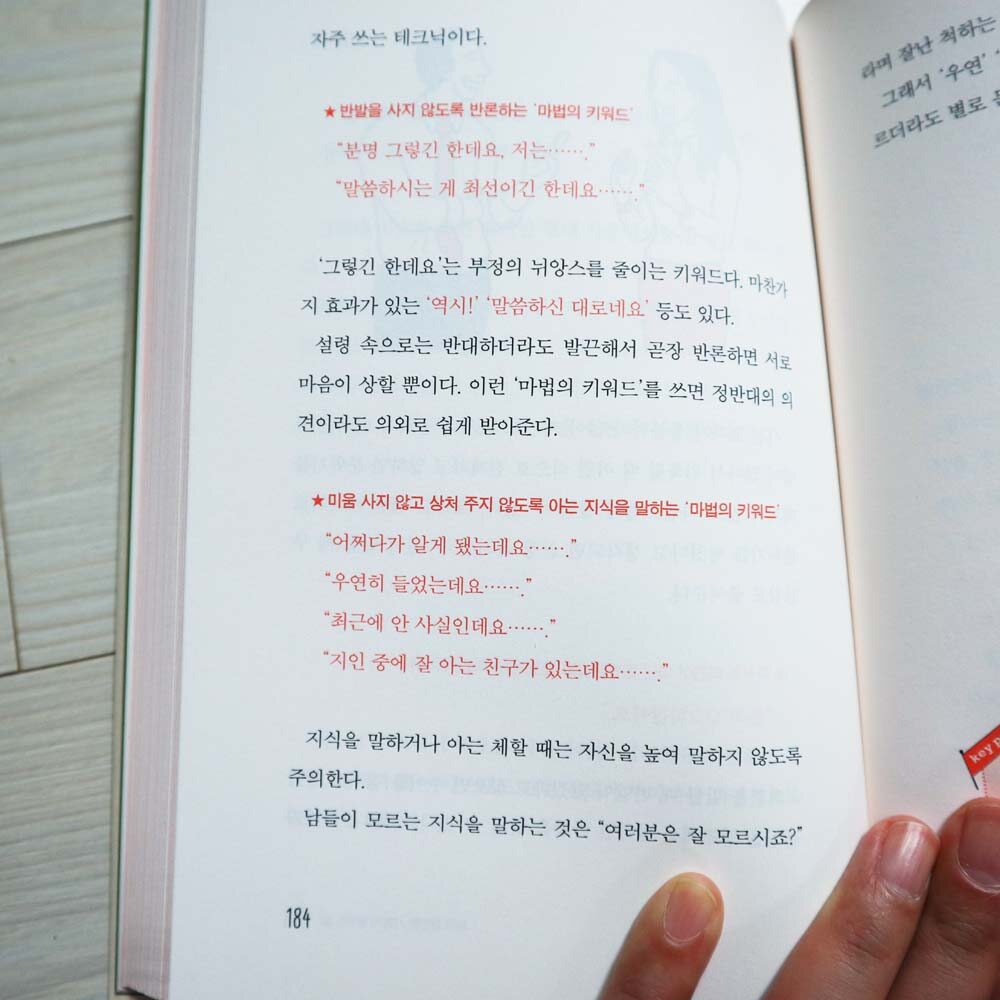 자주 쓰는 테크닉이다.
★ 반발을 사지 않도록 반론하는 '마법의 키워드'
"분명 그렇긴 한데요, 저는……."
"말씀하시는 게 최선이긴 한데요……."
'그렇긴 한데요'는 부정의 뉘앙스를 줄이는 키워드다. 마찬가
지 효과가 있는 '역시!' '말씀하신 대로네요' 등도 있다.
설령 속으로는 반대하더라도 발끈해서 곧장 반론하면 서로
마음이 상할 뿐이다. 이런 '마법의 키워드'를 쓰면 정반대의 의
견이라도 의외로 쉽게 받아준다.
★ 미움 사지 않고 상처 주지 않도록 아는 지식을 말하는 '마법의 키워드'
"어쩌다가 알게 됐는데요……."
"우연히 들었는데요……."
"최근에 안 사실인데요……."
"지인 중에 잘 아는 친구가 있는데요……."
지식을 말하거나 아는 체할 때는 자신을 높여 말하지 않도록
주의한다.
남들이 모르는 지식을 말하는 것은 "여러분은 잘 모르시죠?"
184
라며 잘난 척하는
그래서 '우연'
르더라도 별로
key